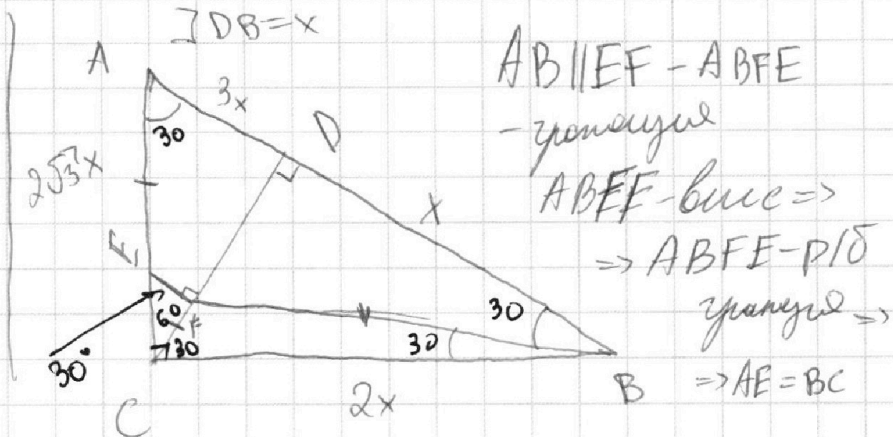 ]DB=x
A
3x
30
D
2√3x
x
E
60
F
30
30
30
30°
C
2x
B
AB∥EF - ABFE
- трапеция
ABFE - впис =>
=> ABFE - р/б
трапеция =>
=> AE = BC